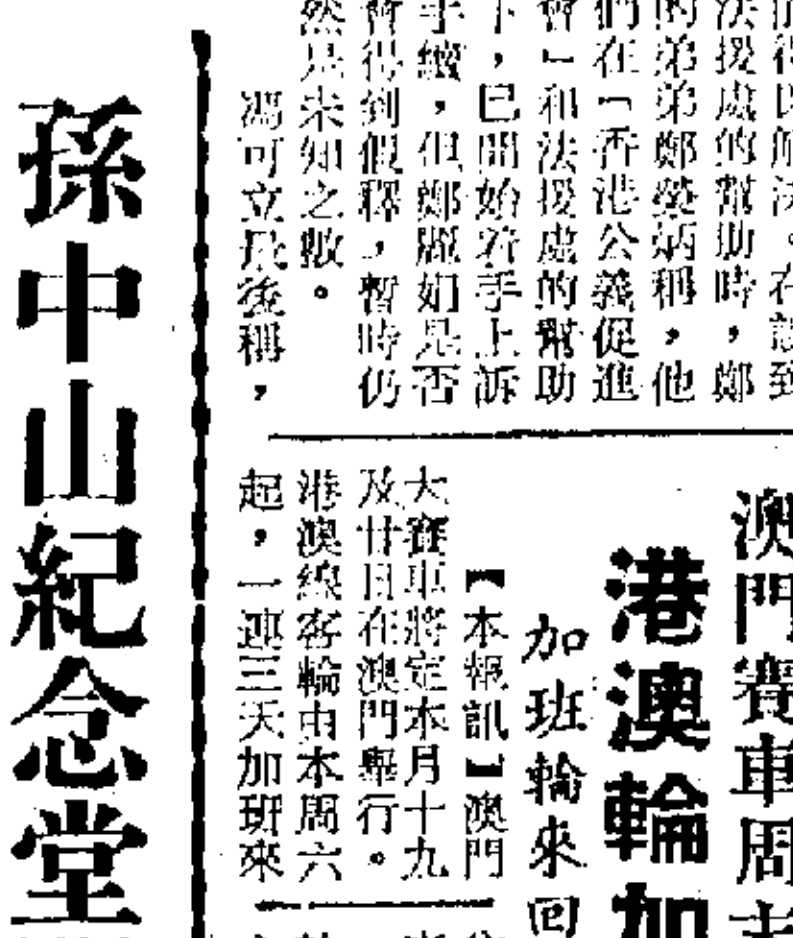 得以解決。在談到
法援處的幫助時，鄭
的弟弟鄭榮炳稱，他
們在「香港公義促進
會」和法援處的幫助
下，已開始着手上訴
手續，但鄭麗如是否
會得到假釋，暫時仍
然是未知之數。
馮可立最後稱，
澳門賽車周末
港澳輪加
加班輪來回
【本報訊】澳門
大賽車將定本月十九
及廿日在澳門舉行。
港澳線客輪由本周六
起，一連三天加班來
孫中山紀念堂